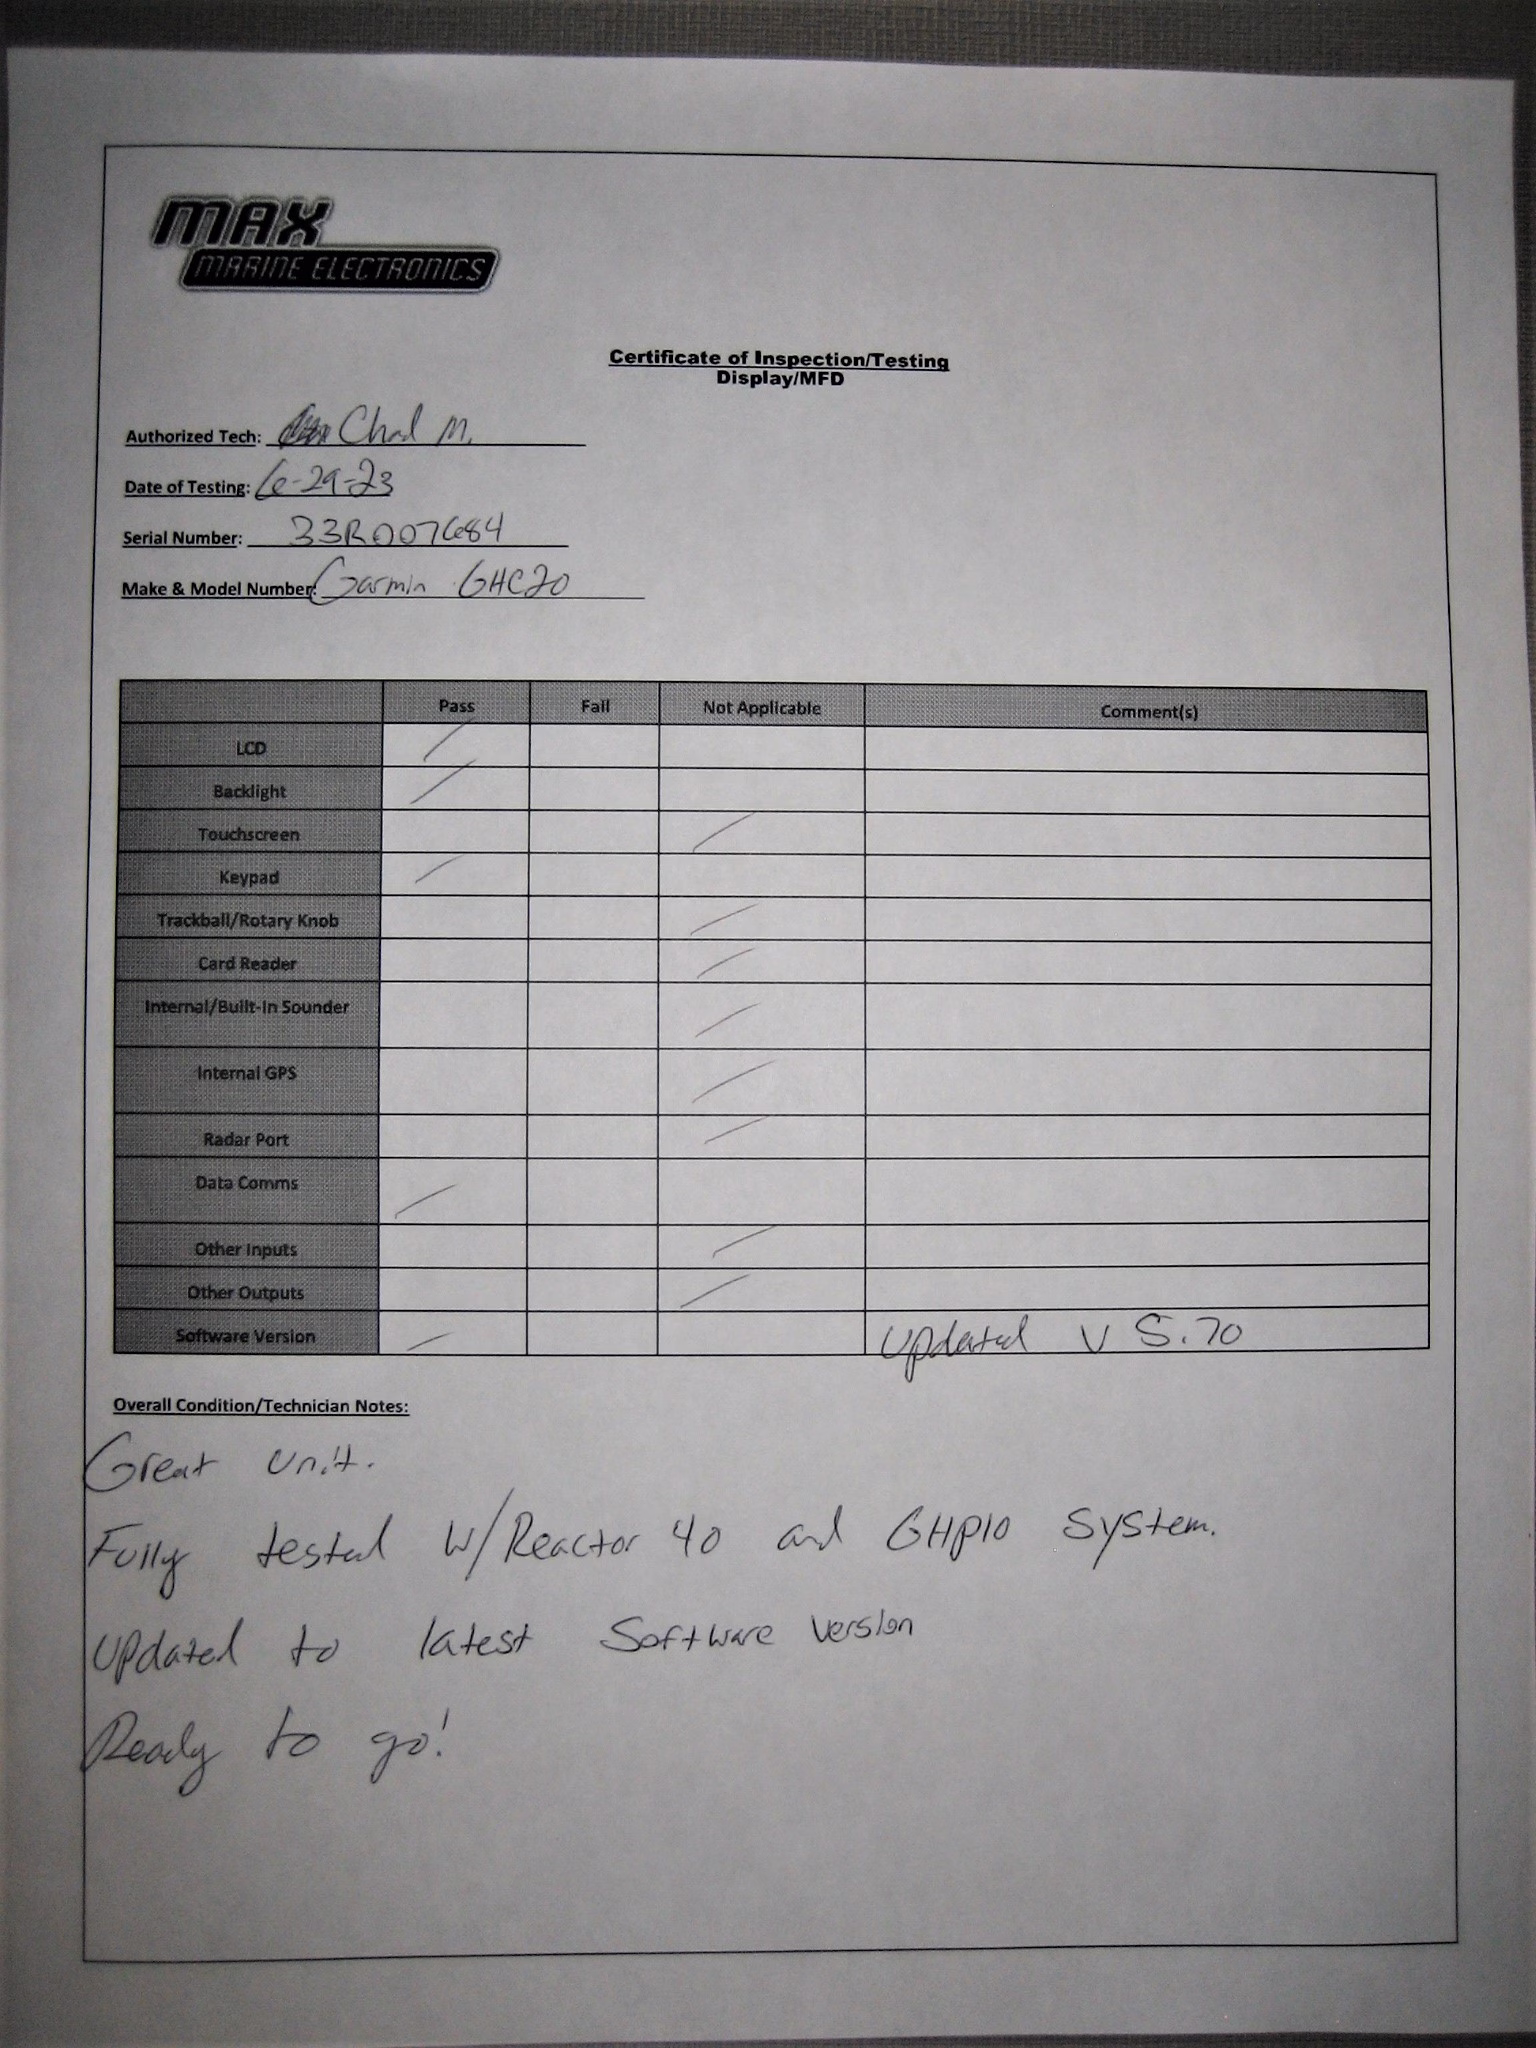 MAX
MARINE ELECTRONICS
Certificate of Inspection/Testing
Display/MFD
Authorized Tech: Chad M.
Date of Testing: 6-29-23
Serial Number: 33R007684
Make & Model Number: Garmin GHC20
Pass Fail Not Applicable Comment(s)
LCD /
Backlight /
Touchscreen /
Keypad /
Trackball/Rotary Knob /
Card Reader /
Internal/Built-In Sounder /
Internal GPS /
Radar Port /
Data Comms /
Other Inputs /
Other Outputs /
Software Version / Updated V 5.70
Overall Condition/Technician Notes:
Great unit.
Fully tested w/Reactor 40 and GHP10 System.
Updated to latest Software version
Ready to go!